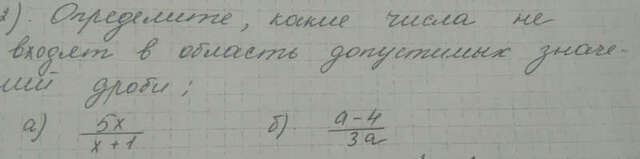 2). Определите, какие числа не
входят в область допустимых значе-
ний дроби:
а) 5x/x+1 б) a-4/3a